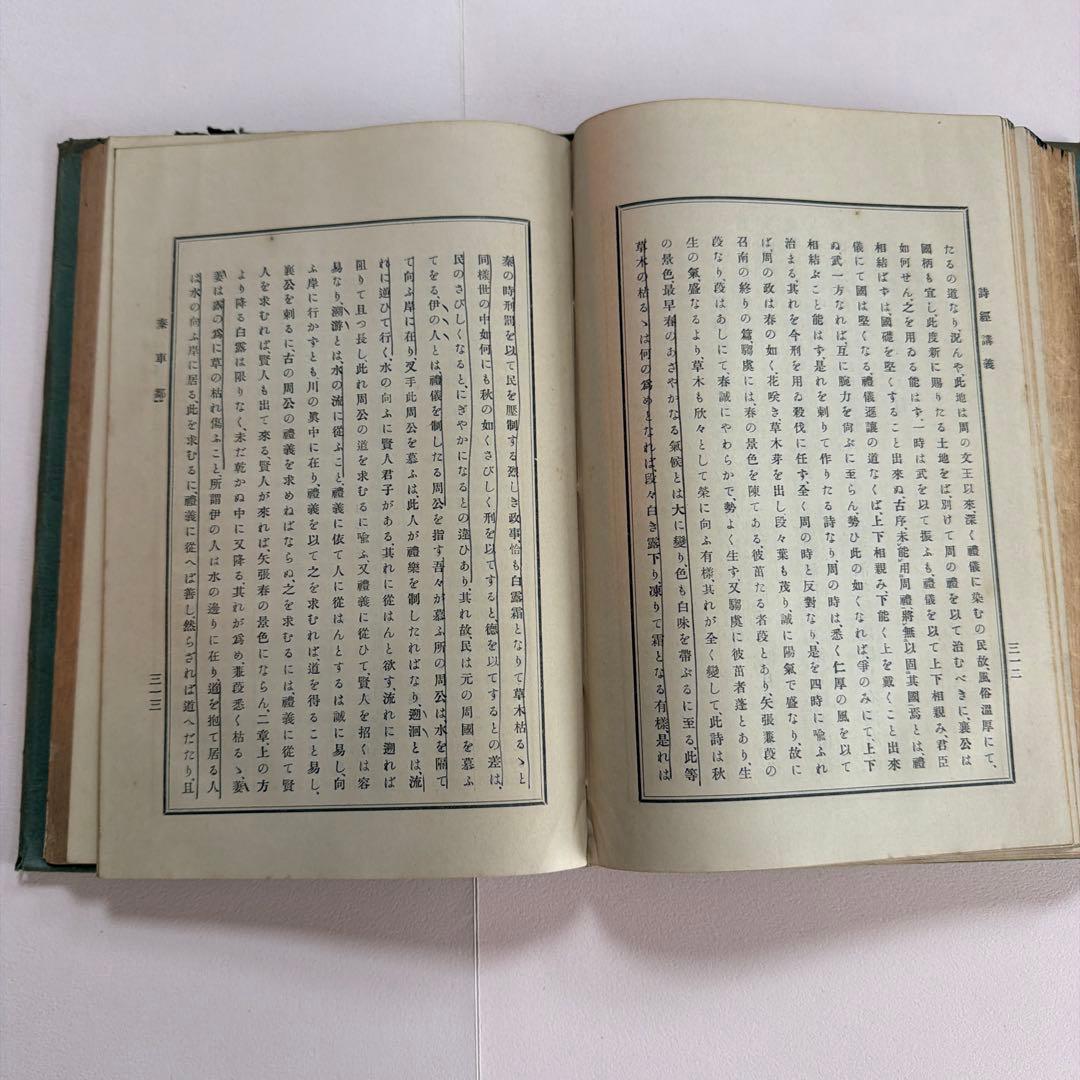 詩經講義
三一二
たるの道なり、況んや、此地は周の文王以來深く禮儀に染むの民故風俗溫厚にて、
國柄も宜し、此度新に賜りたる土地をば別けて周の禮を以て治むべきに、襄公は
如何せん、之を用ゐる能はず、一時は武を以て振ふも、禮儀を以て上下相親み、君臣
相結ばずは國礎を堅くすること出來ぬ古序、未能用周禮將無以固其國焉とは、禮
儀にて國は堅くなる、禮儀遜讓の道なくば、上下相親み下能く上を戴くこと出來
ぬ武一方なれば互に腕力を尙ぶに至らん、勢ひ此の如くなれば、爭のみにて、上下
相結ぶこと能はず、是れを刺りて作りたる詩なり、周の時は、悉く仁厚の風を以て
治まる其れを今刑を用ゐ殺伐に任す、全く周の時と反對なり、是を四時に喩ふれ
ば、周の政は春の如く、花咲き、草木芽を出し段々葉も茂り、誠に陽氣で盛なり、故に
召南の終りの篇騶虞には春の景色を陳てある彼茁たる者葭とあり、矢張蒹葭の
葭なり、葭はあしにて、春誠にやわらかで、勢よく生す、又騶虞に彼茁者蓬とあり、生
生の氣盛なるより、草木も欣々として榮に向ふ有樣、其れが全く變して、此詩は秋
の景色最早春のあざやかなる氣候とは大に變り、色も白味を帶ぶるに至る、此等
草木の枯るゝは何の爲めとなれば段々白き露下り、凍りて霜となる有樣、是れは
秦の時刑罰を以て民を壓制する烈しき政事、恰も白露霜となりて草木枯るゝと
同樣世の中如何にも秋の如くさびしく刑を以てすると、德を以てするとの差は、
民のさびしくなると、にぎやかになるとの違ひあり、其れ故民は元の周國を慕ふ
てをる、伊の人とは禮儀を制したる周公を指す、吾々が慕ふ所の周公は、水を隔て
て向ふ岸に在り、又手此周公を慕ふは、此人が禮樂を制したればなり、遡洄とは、流
れに逆ひて行く、水の向ふに賢人君子がある、其れに從はんと欲す、流れに遡れば
阻りて且つ長し、此れ周公の道を求むるに喩ふ又禮義に從ひて、賢人を招くは容
易なり、溯游とは、水の流に從ふこと、禮義に依て人に從はんとするは誠に易し、向
ふ岸に行かずとも川の眞中に在り、禮義を以て之を求むれば、道を得ること易し、
襄公を刺るに、古の周公の禮義を求めねばならぬ、之を求むるには、禮義に從て賢
人を求むれば、賢人も出て來る、賢人が來れば、矢張春の景色にならん、二章、上の方
より降る白露は限りなく、未だ乾かぬ中に又降る、其れが爲め、蒹葭悉く枯るゝ、萋
萋は露の爲に草の枯れ傷ふこと、所謂伊の人は水の邊りに在り、道を抱て居る人
は水の向ふ岸に居る、此を求むるに、禮義に從へば善し、然らざれば道へだたり、且
秦 車鄰
三一三